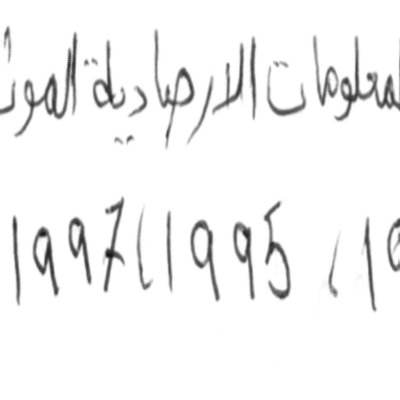 لمعلومات الارصادية الموث
19 ، 1995 ، 1997